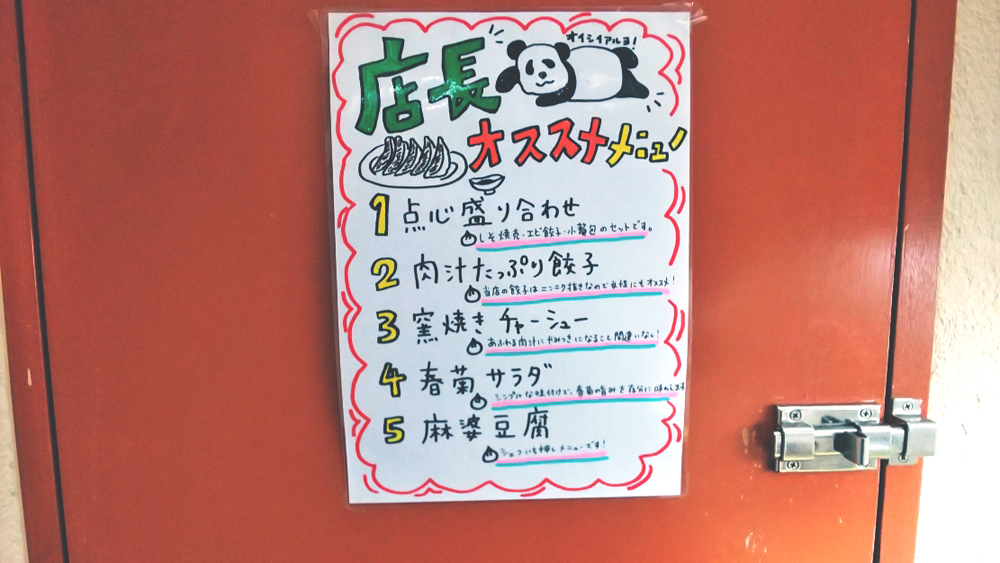 オイシイアルヨ!
店長
オススメメニュー
1 点心盛り合わせ
しそ焼売・エビ餃子・小籠包のセットです。
2 肉汁たっぷり餃子
当店の餃子はニンニク抜きなので女性にもオススメ!
3 窯焼きチャーシュー
あふれる肉汁にやみつきになること間違いなし!
4 春菊サラダ
シンプルな味付けで、春菊の旨みを存分に味わえます
5 麻婆豆腐
シェフいち押しメニューです!